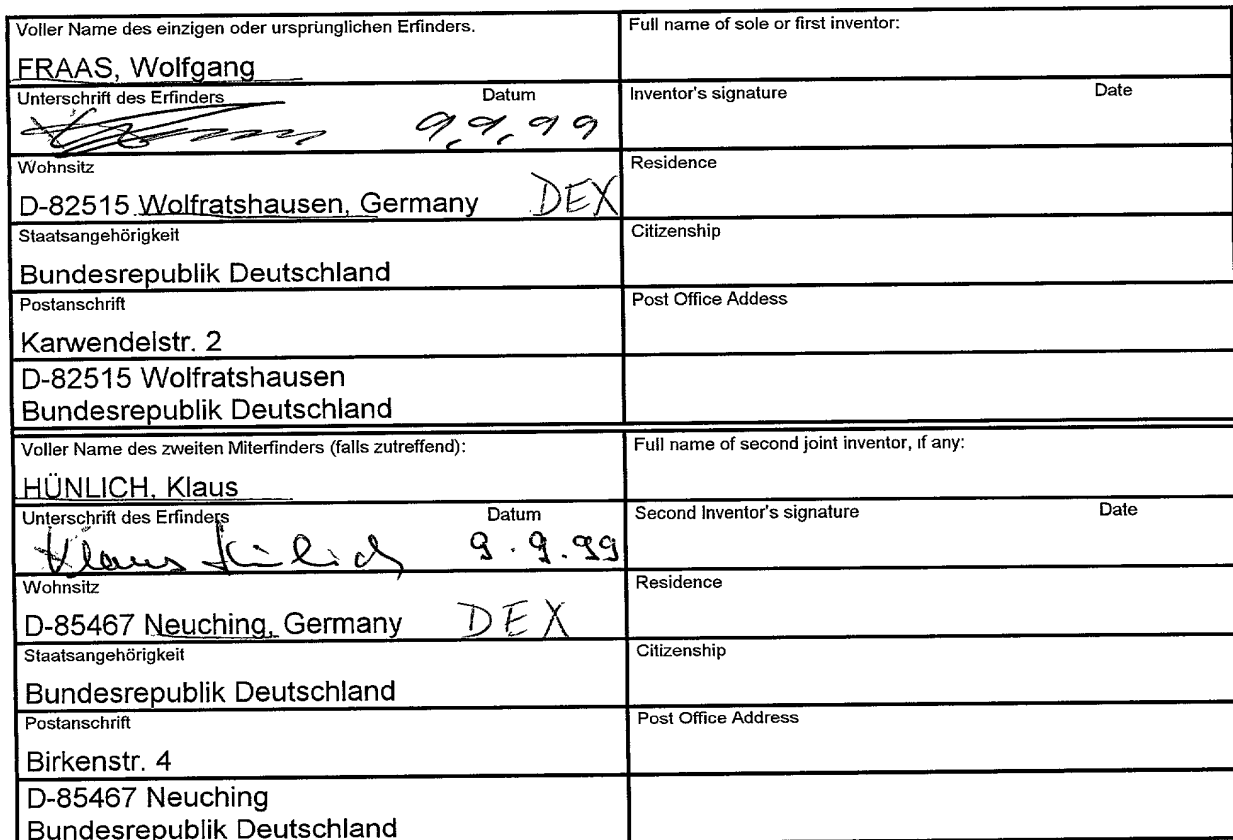 Voller Name des einzigen oder ursprünglichen Erfinders.
FRAAS, Wolfgang
Full name of sole or first inventor:
Unterschrift des Erfinders Datum
9.9.99
Inventor's signature Date
Wohnsitz
D-82515 Wolfratshausen, Germany DEX
Residence
Staatsangehörigkeit
Bundesrepublik Deutschland
Citizenship
Postanschrift
Karwendelstr. 2
Post Office Addess
D-82515 Wolfratshausen
Bundesrepublik Deutschland
Voller Name des zweiten Miterfinders (falls zutreffend):
HÜNLICH, Klaus
Full name of second joint inventor, if any:
Unterschrift des Erfinders Datum
Klaus Hünlich 9.9.99
Second Inventor's signature Date
Wohnsitz
D-85467 Neuching, Germany DEX
Residence
Staatsangehörigkeit
Bundesrepublik Deutschland
Citizenship
Postanschrift
Birkenstr. 4
Post Office Address
D-85467 Neuching
Bundesrepublik Deutschland